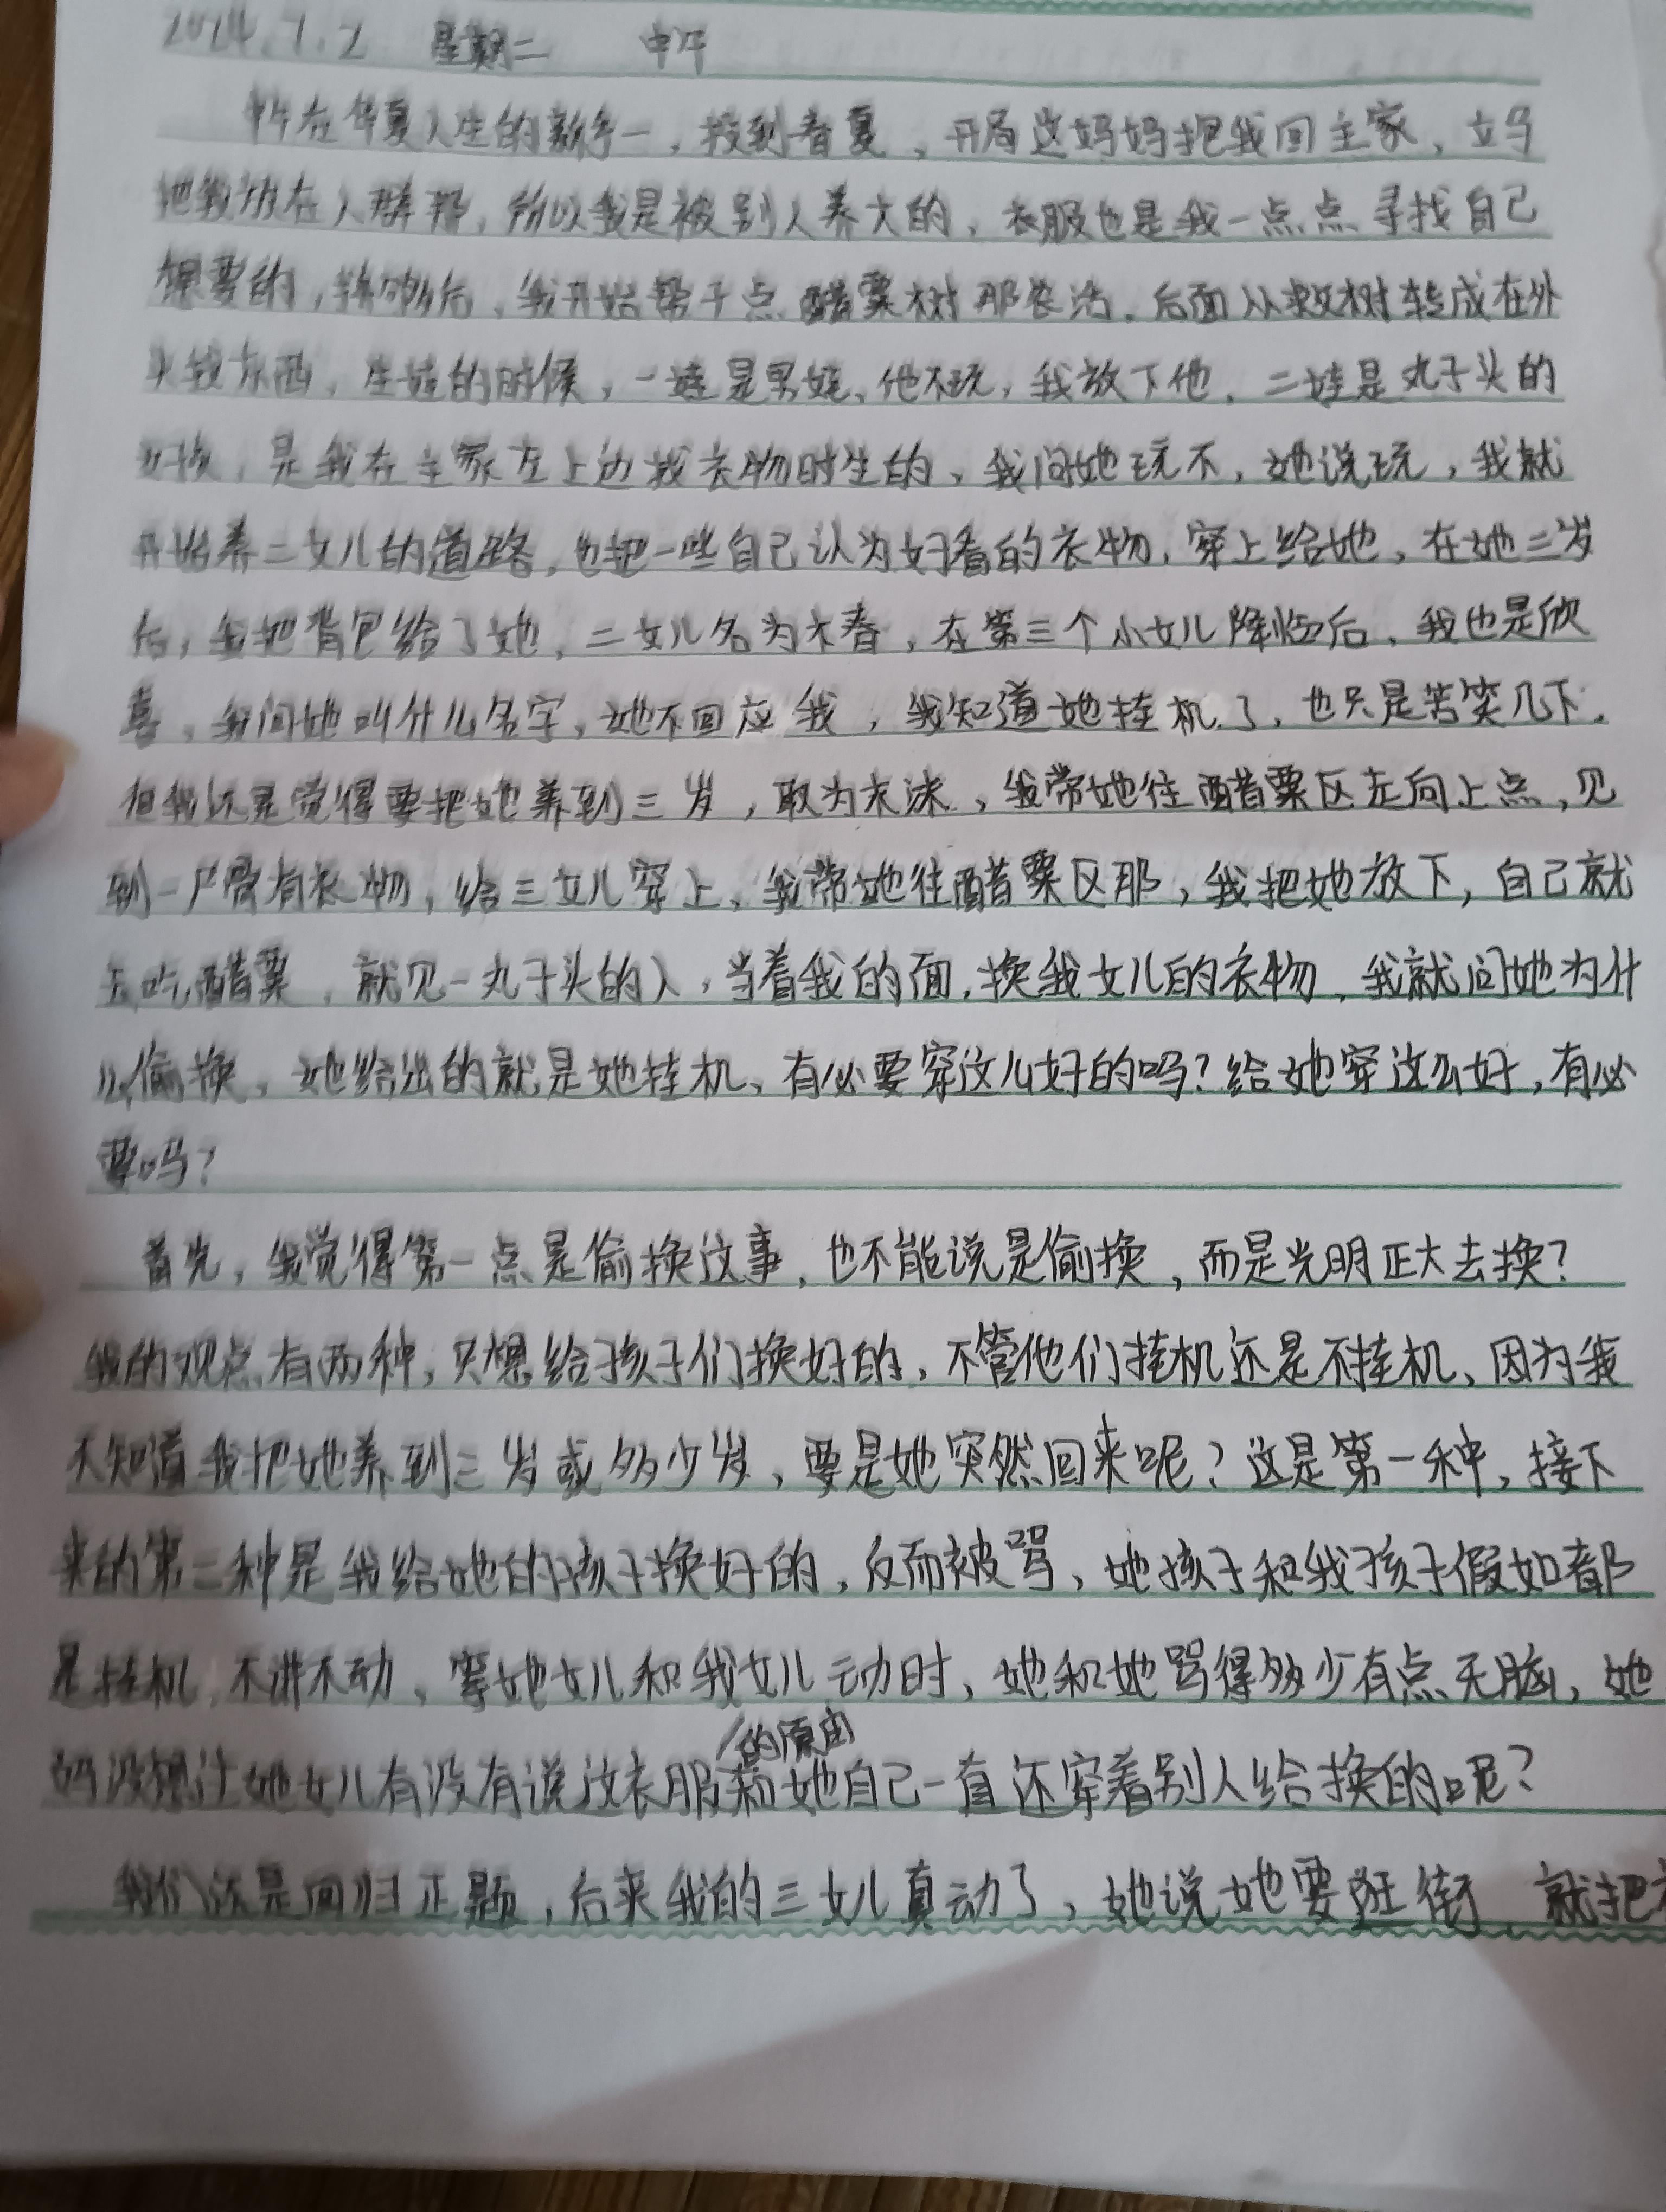 2024.7.2 星期二 中午
在华夏人生的新手一，投到春夏，开局这妈妈把我回主家，立马
把我放在人群那，所以我是被别人养大的，衣服也是我一点点寻找自己
想要的，后，我开始帮手点醋栗树那农活，后面从救树转成在外
头找东西，生娃的时候，一娃是男娃、他不玩，我放下他，二娃是丸子头的
女孩，是我在主家左上边找衣物时生的，我问她玩不，她说玩，我就
开始养二女儿的道路，也把一些自己认为好看的衣物，穿上给她，在她三岁
后，我把背包给了她，二女儿名为木春，在第三个小女儿降临后，我也是欣
喜，我问她叫什么名字，她不回应我，我知道她挂机了，也只是苦笑几下，
但我还是觉得要把她养到三岁，取为末沫，我带她往醋栗区走向上点，见
到一尸骨有衣物，给三女儿穿上，我带她往醋栗区那，我把她放下，自己就
去吃醋栗，就见一丸子头的人，当着我的面，换我女儿的衣物，我就问她为什
么偷换，她给出的就是她挂机、有必要穿这么好的吗？给她穿这么好，有必
要吗？
首先，我觉得第一点是偷换这事，也不能说是偷换，而是光明正大去换？
我的观点有两种，只想给孩子们换好的，不管他们挂机还是不挂机、因为我
不知道我把她养到三岁或多少岁，要是她突然回来呢？这是第一种，接下
来的第二种是我给她的孩子换好的，反而被骂，她孩子和我孩子假如都
是挂机，不讲不动，等她女儿和我女儿动时，她和她骂得多少有点无脑，她
妈没想过她女儿有没有说这衣服的原由和她自己一直还穿着别人给换的呢？
我们还是回归正题，后来我的三女儿真动了，她说她要逛街，就把